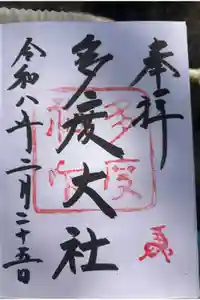 奉拝
多度大社
令和八年二月二十五日